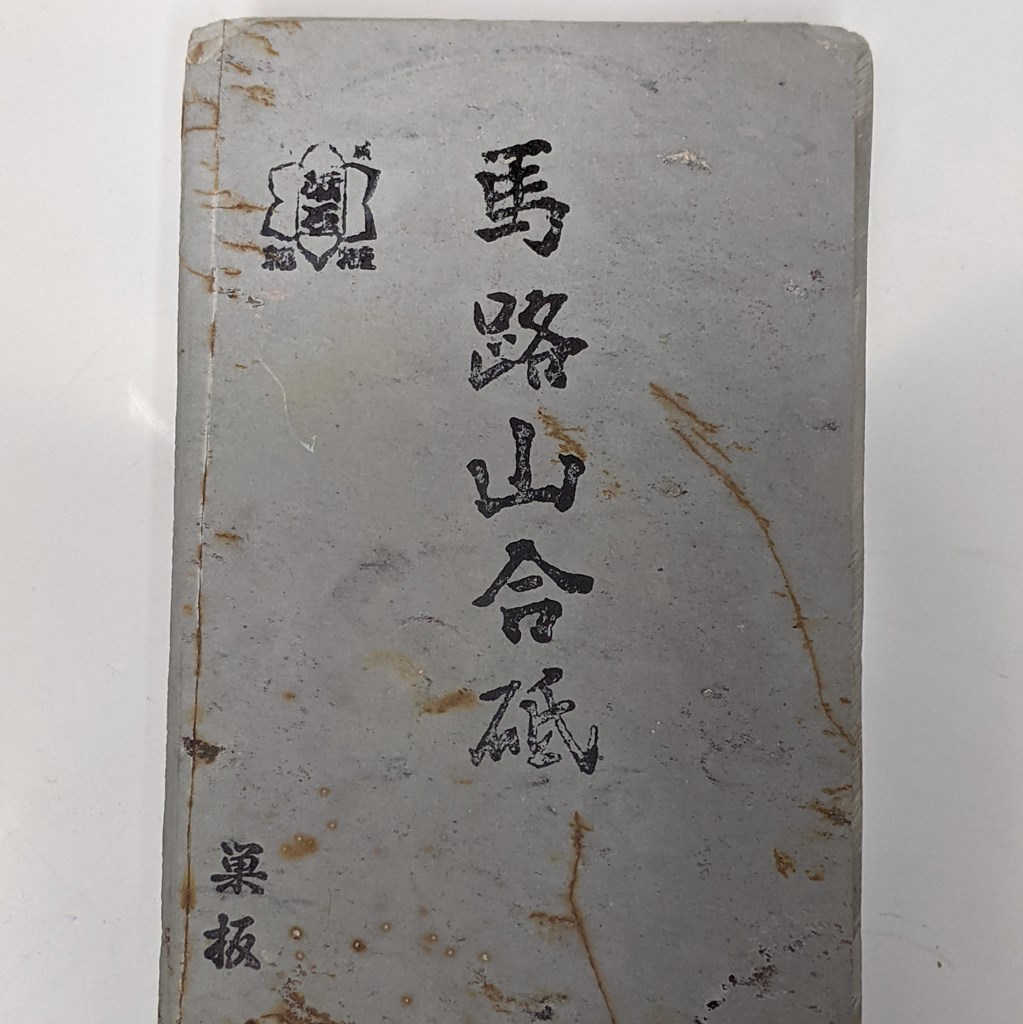 馬路山合砥
巣板